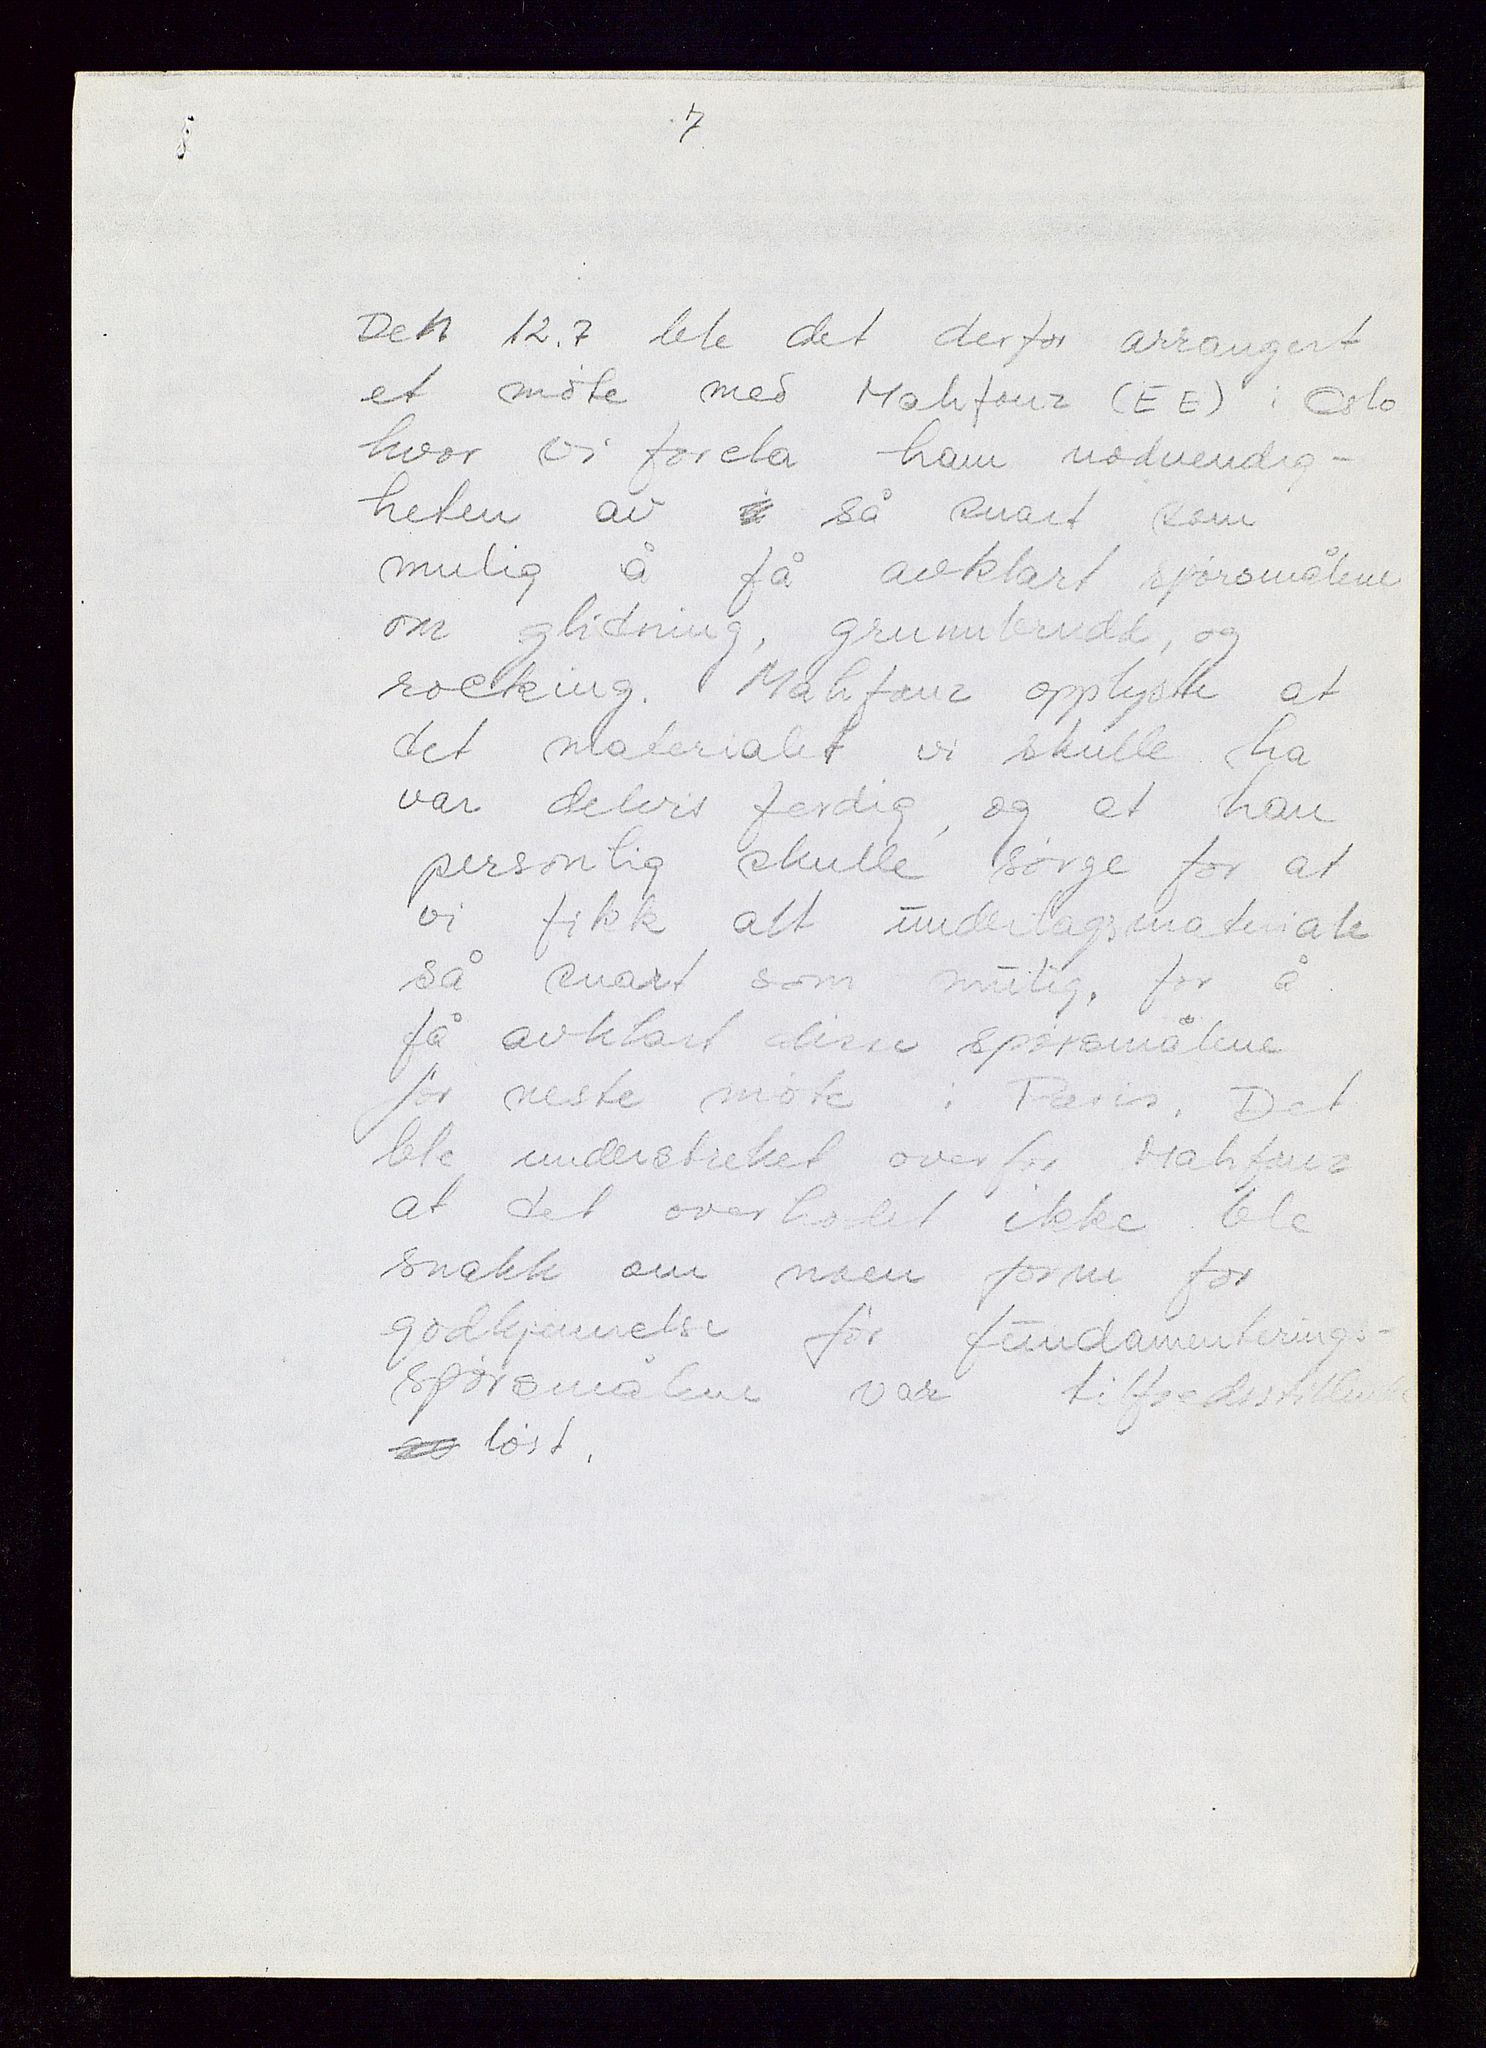 7
Den 12.7 ble det derfor arrangert
et möte med Mahfouz (EE) i Oslo
hvor vi forela ham nödvendig-
heten av så snart som
mulig å få avklart spörsmålene
om glidning, grunnbrudd, og
rocking. Mahfouz opplyste at
det materialet vi skulle ha
var delvis ferdig, og at han
personlig skulle sörge for at
vi fikk alt underlagsmateriale
så snart som mulig, for å
få avklart disse spörsmålene
för neste möte i Paris. Det
ble understreket overfor Mahfouz
at det overhodet ikke ble
snakk om noen form for
godkjennelse för fundamenterings-
spörsmålene var tilfredsstillende
löst.